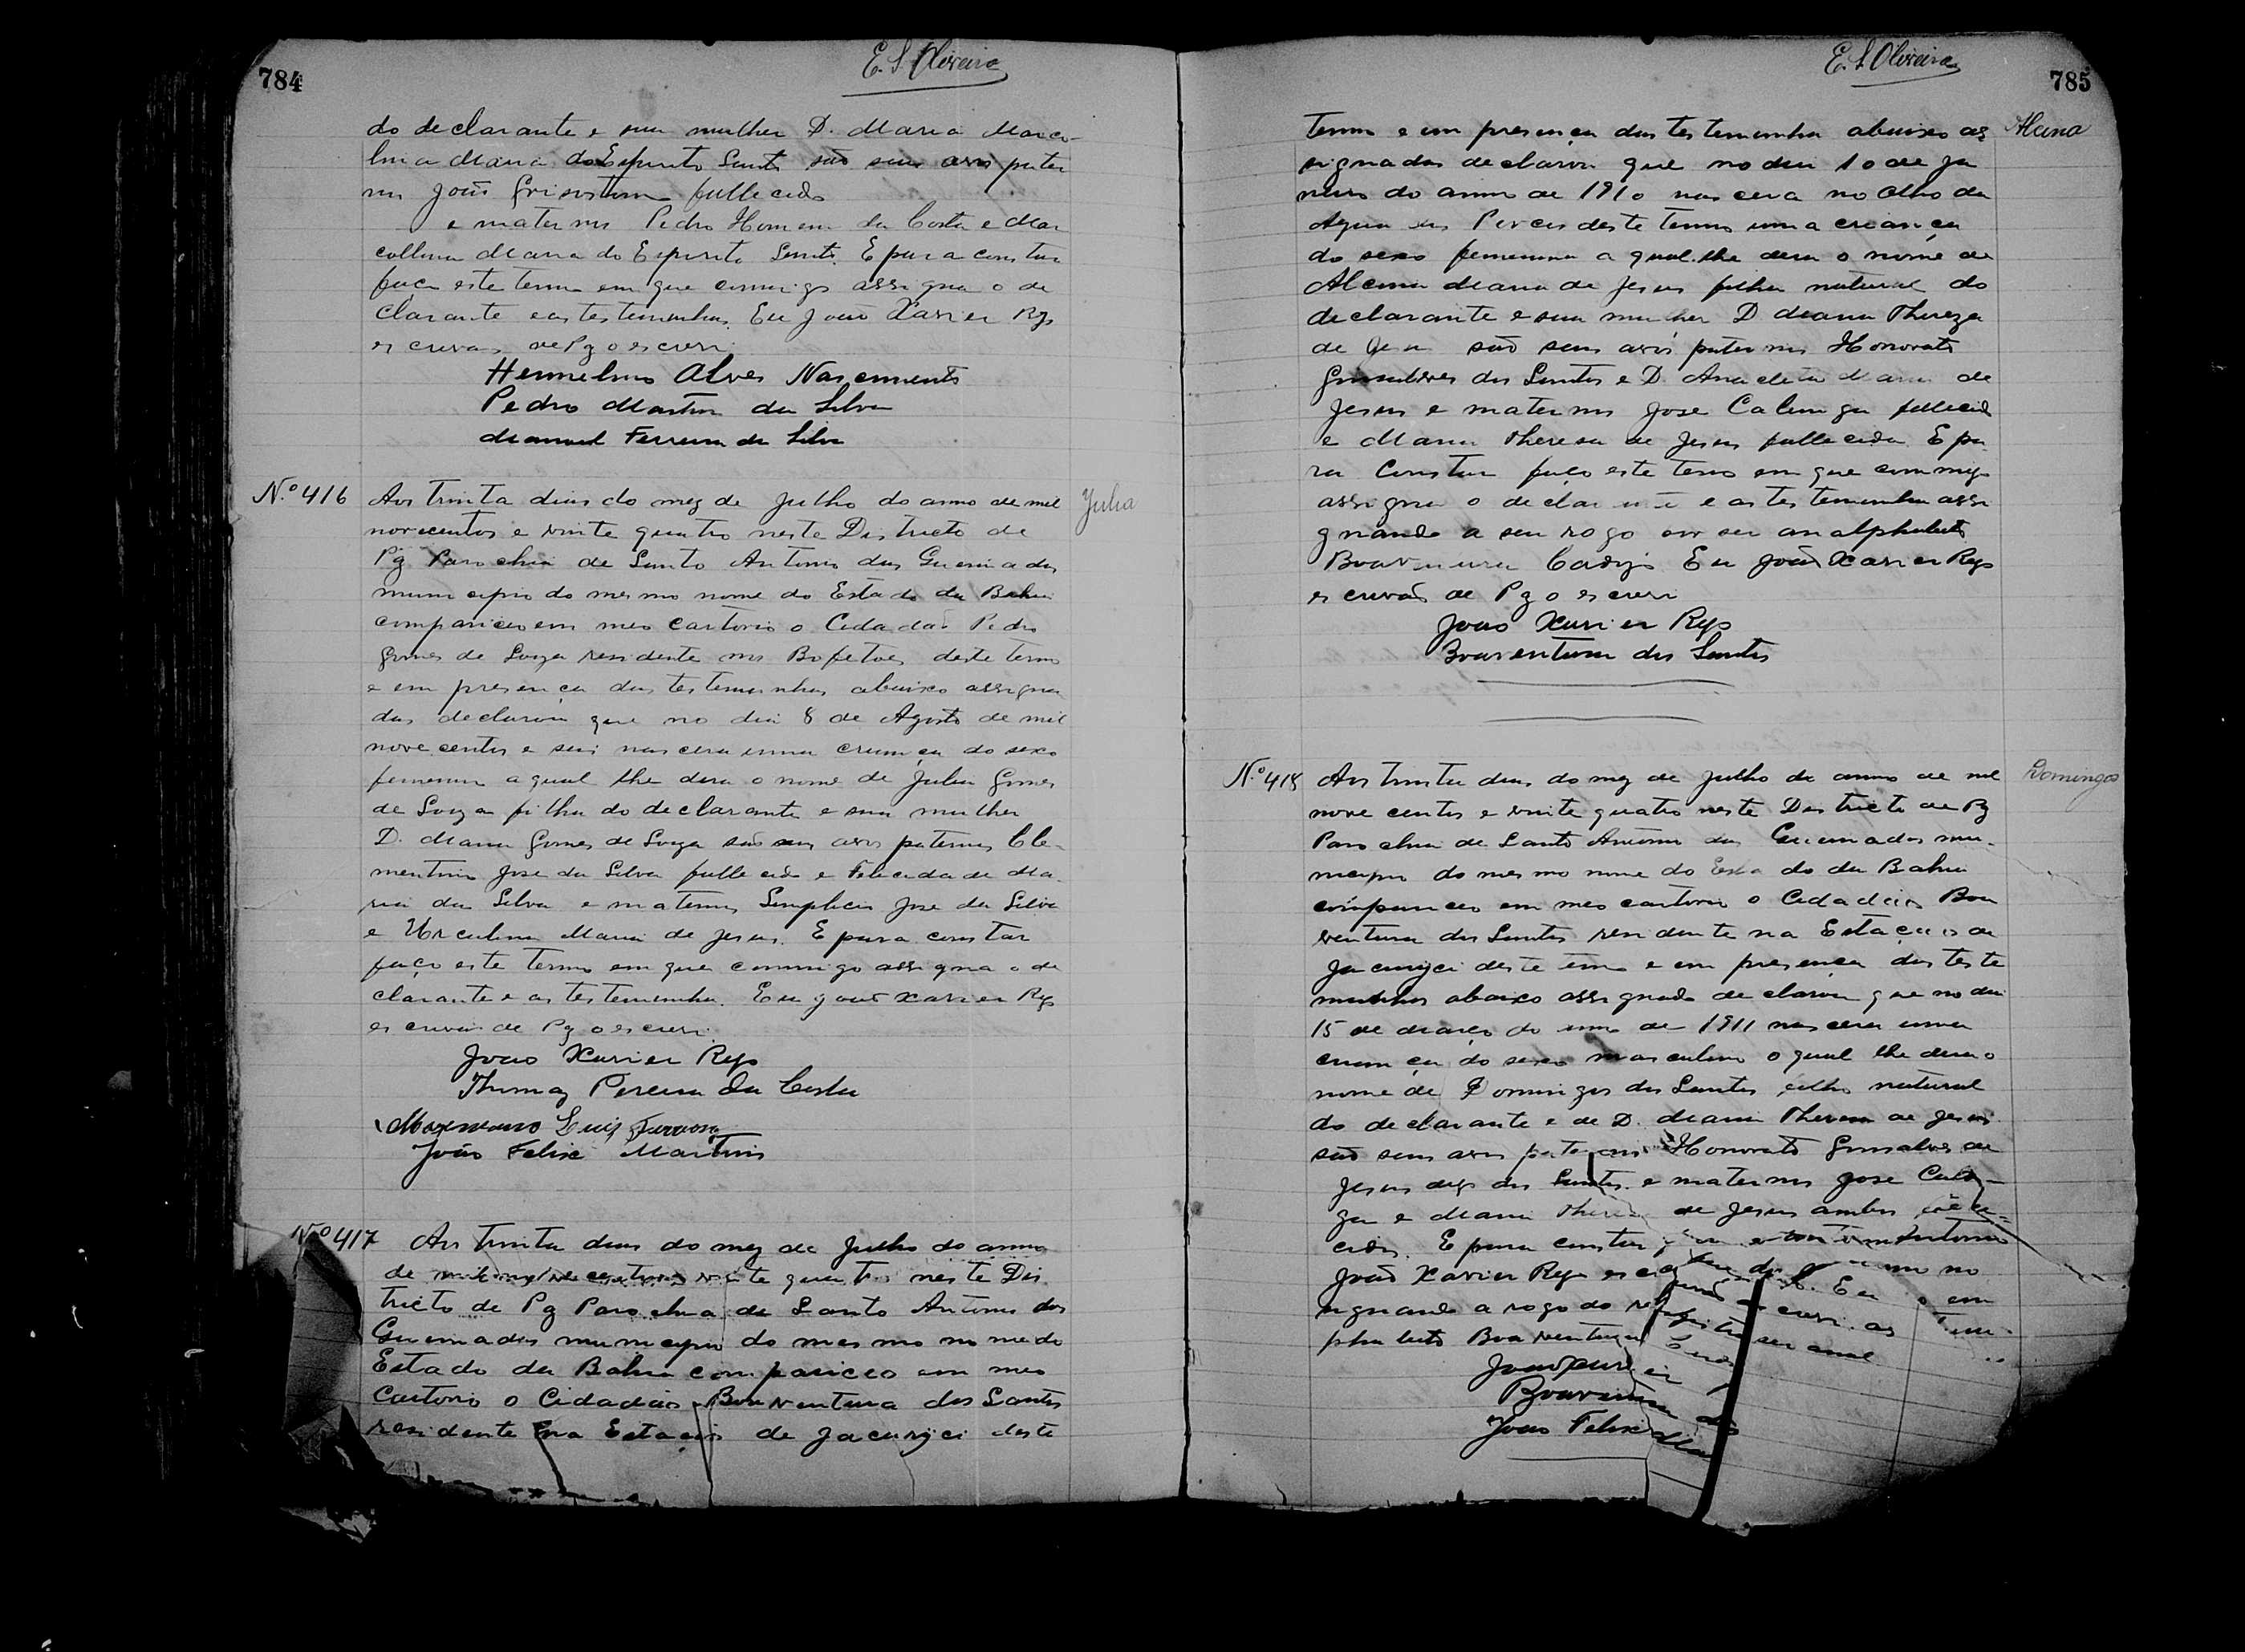 784
E. S. Oliveira
do declarante e sua mulher D. Maria Marco-
lina Maria do Espirito Santo são seus avos pater
nos João Grisostomo fallecido
e maternos Pedro Homem da Costa e Mar
collina Maria do Espirito Santo. E para constar
faço este termo em que commigo assigna o de
clarante e as testemunhas. Eu João Xavier Rego
escrivão de Pz o escrevi.
Hermelino Alves Nascimento
Pedro Martins da Silva
Manoel Ferreira da Silva
N.º 416
Julia
Aos trinta dias do mez de Julho do anno de mil
novecentos e vinte quatro neste Districto de
Pz Parochia de Santo Antonio das Queimadas
municipio do mesmo nome do Estado da Bahia
compariceo em meo cartorio o Cidadão Pedro
Gomes de Souza residente nos deste termo
e em presença das testemunhas abaixo assigna
das declarou que no dia 8 de Agosto de mil
novecentos e seis nascera uma criança do sexo
femenino a qual lhe dera o nome de Julia Gomes
de Souza filha do declarante e sua mulher
D. Maria Gomes de Souza são seus avos paternos Cle-
mentino Jose da Silva fallecido e Felicidade Ma-
ria da Silva e maternos Simplicio Jose da Silva
e Urculina Maria de Jesus. E para constar
faço este termo em que commigo assigna o de
clarante e as testemunha. Eu João Xavier Rego
escrivão de Pz o escrevi.
João Xavier Rego
Thomaz Pereira da Costa
Maximiano Luis
João Felix Martins
Nº 417
Aos trinta dias do mez de Julho do anno
de mil novecentos e vinte quatro neste Dis
tricto de Pz Parochia de Santo Antonio das
Queimadas municipio do mesmo nome do
Estado da Bahia compariceo em meo
Cartorio o Cidadão Boaventura dos Santos
residente na Estação de Jacuricy deste
785
E. S. Oliveira
Alcina
termo e em presença das testemunha abaixo as
signadas declarou que no dia 10 de Ja
neiro do anno de 1910 nascera no Olho da
Agua das Porcas deste termo uma criança
do sexo femenino a qual lhe dera o nome de
Alcina Maria de Jesus filha natural do
declarante e sua mulher D Maria Thereza
de Jesus são seus avós paternos Honorato
Gonsalves dos Santos e D. Anacleta Maria de
Jesus e maternos Jose Calunga fallecido
e Maria Theresa de Jesus fallecida. E pa
ra constar faço este termo em que commigo
assigna o declarante e as testemunha assi
gnando a seu rogo por ser analphabeto
Boaventura Eu João Xavier Rego
escrivão de Pz o escrevi
João Xavier Rego
Boaventura dos Santos
N.º 418
Domingos
Aos trinta dias do mez de Julho do anno de mil
novecentos e vinte quatro neste Districto de Pz
Parochia de Santo Antonio das Queimadas mu-
nicipio do mesmo nome do Estado da Bahia
compariceo em meo cartorio o Cidadão Boa
ventura dos Santos residente na Estação de
Jacuricy deste termo e em presença das teste
munhas abaixo assignado declarou que no dia
15 de Março do anno de 1911 nascera uma
criança do sexo masculino o qual lhe dera o
nome de Domingos dos Santos filho natural
do declarante e de D. Maria Theresa de Jesus
são seus avos paternos Honorato Gonsalves de
Jesus digo dos Santos e maternos Jose Calun-
ga e Maria Thereza de Jesus ambos falle-
cidos. E para constar
João Xavier Rego Eu
signando a rogo do
phabeto Boaventura
João
Boaventura
João Felix Mar